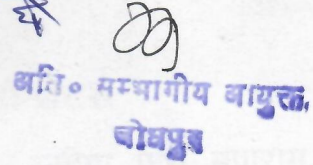 अति० सम्भागीय आयुक्त,
जोधपुर